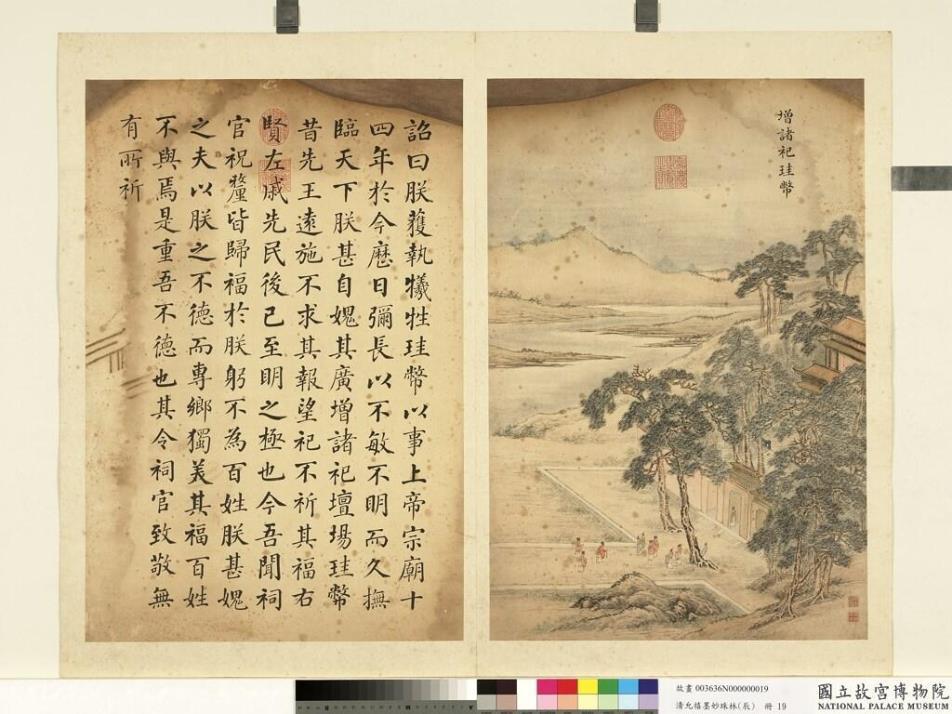 增諸祀珪幣
詔曰朕獲執犧牲珪幣以事上帝宗廟十
四年於今厯日彌長以不敏不明而久撫
臨天下朕甚自媿其廣增諸祀壇場珪幣
昔先王遠施不求其報望祀不祈其福右
賢左戚先民後己至明之極也今吾聞祠
官祝釐皆歸福於朕躬不為百姓朕甚媿
之夫以朕之不德而專鄉獨美其福百姓
不與焉是重吾不德也其令祠官致敬無
有所祈
故畫 003636N000000019
清允禧墨妙珠林(辰) 冊 19
國立故宮博物院
NATIONAL PALACE MUSEUM